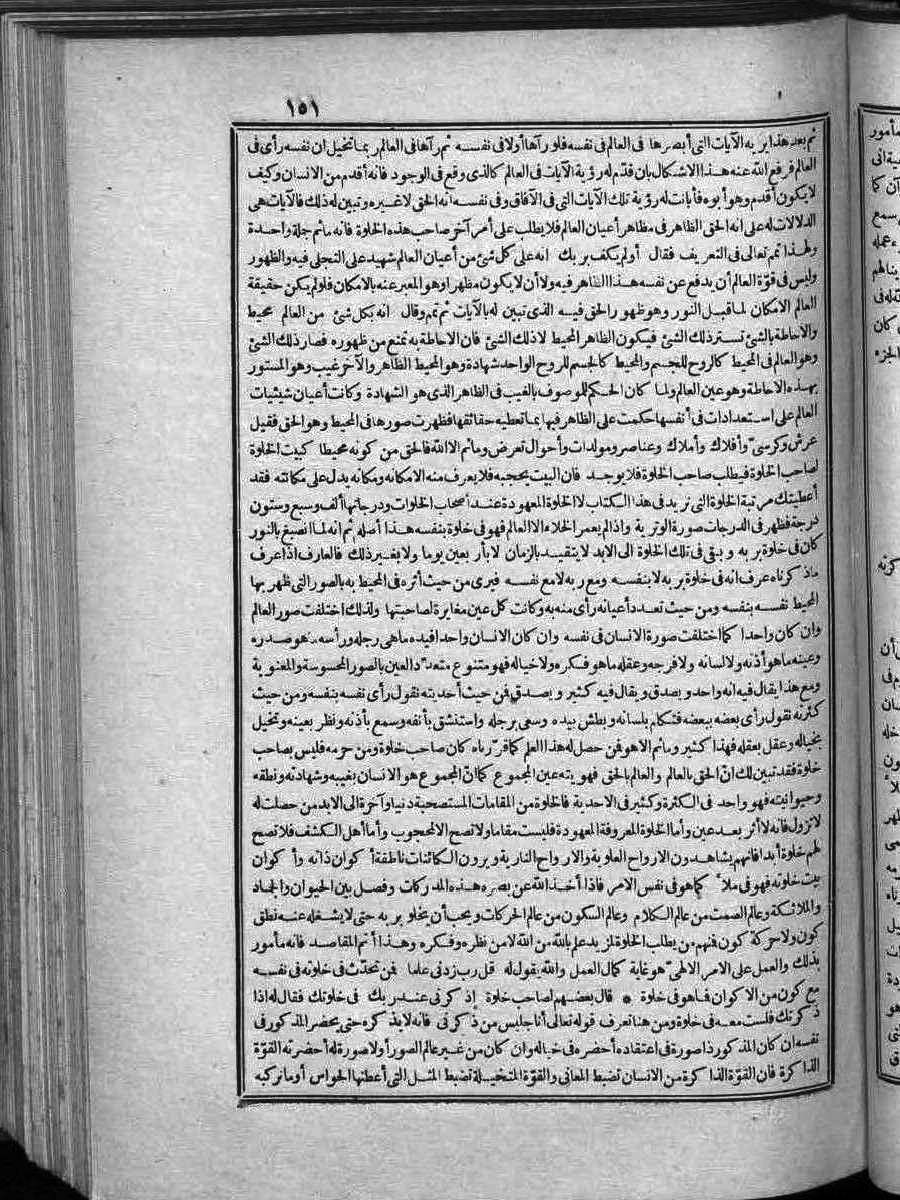 ١٥١
ثم بعد هذا يريه الآيات التي أبصرها في العالم في نفسه فلو رآها أولا في نفسه ثم رآها في العالم ربما تخيل ان نفسه رأى في
العالم فرفع الله عنه هذا الاشكال بان قدّم له رؤية الآيات في العالم كالذي وقع في الوجود فانه أقدم من الانسان وكيف
لا يكون أقدم وهو أبوه فأبانت له رؤية تلك الآيات التي في الآفاق وفي نفسه انه الحق لا غيره وتبين له ذلك فالآيات هي
الدلالات له على انه الحق الظاهر في مظاهر أعيان العالم فلا يطلب على أمر آخر صاحب هذه الخلوة فانه ما ثم جلة واحدة
ولهذا تمم تعالى في التعريف فقال أولم يكف بربك انه على كل شئ من أعيان العالم شهيد على التجلي فيه والظهور
وليس في قوّة العالم أن يدفع عن نفسه هذا الظاهر فيه ولا أن لا يكون مظهرا وهو المعبر عنه بالامكان فلو لم يكن حقيقة
العالم الامكان لما قبل النور وهو ظهور الحق فيه الذي تبين له بالآيات ثم تمم وقال انه بكل شئ من العالم محيط
والاحاطة بالشئ تستر ذلك الشئ فيكون الظاهر المحيط لا ذلك الشئ فان الاحاطة به تمنع من ظهوره فصار ذلك الشئ
وهو العالم في المحيط كالروح للجسم والمحيط كالجسم للروح الواحد شهادة وهو المحيط الظاهر والآخر غيب وهو المستور
بهذه الاحاطة وهو عين العالم ولما كان الحكم للموصوف بالغيب في الظاهر الذي هو الشهادة وكانت أعيان شيئيات
العالم على استعدادات في أنفسها حكمت على الظاهر فيها بما تعطيه حقائقها فظهرت صورها في المحيط وهو الحق فقيل
عرش وكرسيّ وأفلاك وأملاك وعناصر ومولدات وأحوال تعرض وما ثم الا الله فالحق من كونه محيطا كبيت الخلوة
لصاحب الخلوة فيطلب صاحب الخلوة فلا يوجد فان البيت يحجبه فلا يعرف منه الا مكانه ومكانه يدل على مكانته فقد
أعطيتك مرتبة الخلوة التي نريد في هذا الكتاب لا الخلوة المعهودة عند أصحاب الخلوات ودرجاتها ألف وسبع وستون
درجة فظهر في الدرجات صورة الوترية واذا لم يعمر الخلاء الا العالم فهو في خلوة بنفسه هذا أصله ثم انه لما انصبغ بالنور
كان في خلوة بربه وبقي في تلك الخلوة الى الابد لا يتقيد بالزمان لا بأربعين يوما ولا بغير ذلك فالعارف اذا عرف
ما ذكرناه عرف انه في خلوة بربه لا بنفسه ومع ربه لا مع نفسه فيرى من حيث أثره في المحيط به بالصور التي ظهر بها
المحيط نفسه بنفسه ومن حيث تعدد أعيانه رأى منه به وكانت كل عين مغايرة لصاحبتها ولذلك اختلفت صور العالم
وان كان واحدا كما اختلفت صورة الانسان في نفسه وان كان الانسان واحدا فيده ما هي رجله ورأسه ما هو صدره
وعينه ما هو أذنه ولا لسانه ولا فرجه وعقله ما هو فكره ولا خياله فهو متنوع متعدّد العين بالصور المحسوسة والمعنوية
ومع هذا يقال فيه انه واحد ويصدق ويقال فيه كثير ويصدق فمن حيث أحديته نقول رأى نفسه بنفسه ومن حيث
كثرته نقول رأى بعضه ببعضه فتكلم بلسانه وبطش بيده وسعى برجله واستنشق بأنفه وسمع بأذنه ونظر بعينه وتخيل
بخياله وعقل بعقله فهذا كثير وما ثم الا هو فمن حصل له هذا العلم كما قرّرناه كان صاحب خلوة ومن حرمه فليس بصاحب
خلوة فقد تبين لك انّ الحق بالعالم والعالم بالحق فهويته عين المجموع كما انّ المجموع هو الانسان بغيبه وشهادته ونطقه
وحيوانيته فهو واحد في الكثرة وكثير في الاحدية فالخلوة من المقامات المستصحبة دنيا وآخرة الى الابد من حصلت له
لا تزول فانه لا أثر بعد عين وأما الخلوة المعروفة المعهودة فليست مقاما ولا تصح الا لمحجوب وأما أهل الكشف فلا تصح
لهم خلوة أبدا فانهم يشاهدون الارواح العلوية والارواح النارية ويرون الكائنات ناطقة أكوان ذاته وأكوان
بيت خلوته فهو في ملأ كما هو في نفس الامر فاذا أخذ الله عن بصره هذه المدركات وفصل بين الحيوان والجماد
والملائكة وعالم الصمت من عالم الكلام وعالم السكون من عالم الحركات ويحب أن يخلو بربه حتى لا يشغله عنه نطق
كون ولا حركة كون فمنهم من يطلب الخلوة لمزيد علم بالله من الله لا من نظره وفكره وهذا أتم المقاصد فانه مأمور
بذلك والعمل على الامر الالهيّ هو غاية كمال العمل والله يقول له قل رب زدني علما فمن تحدّث في خلوته في نفسه
مع كون من الاكوان فما هو في خلوة * قال بعضهم لصاحب خلوة إذ كرني عند ربك في خلوتك فقال له اذا
ذكرتك فلست معه في خلوة ومن هنا تعرف قوله تعالى أنا جليس من ذكرني فانه لا يذكره حتى يحضر المذكور في
نفسه ان كان المذكور ذا صورة في اعتقاده أحضره في خياله وان كان من غير عالم الصور أولا صورة له أحضرته القوّة
الذاكرة فان القوّة الذاكرة من الانسان تضبط المعاني والقوّة المتخيلة تضبط المثل التي أعطتها الحواس أو ما تركبه